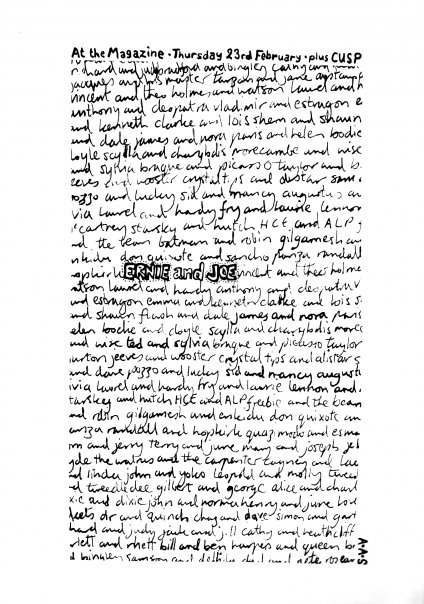 At the Magazine · Thursday 23rd February · plus CUSP
richard and judy bradford and bingley cathy and
jacques and his master tarzan and jane
vincent and theo holmes and watson laurel and h
anthony and cleopatra vladimir and estragon e
and kenneth clarke and lois shem and shaun
and dale james and nora paris and helen bodie
boyle scylla and charybdis morecambe and wise
nd sylvia braque and picasso taylor and b
eeves and wooster crystal tips and alistair sam
pozzo and lucky sid and nancy augustus an
via laurel and hardy fry and laurie lennon
cartney starsky and hutch HCE and ALP f
nd the bean batman and robin gilgamesh an
nkidu don quixote and sancho panza randall
hopkirk ERNIE and JOE vincent and theo holme
atson laurel and hardy anthony and cleopatra v
nd estragon emma and kenneth clarke and lois s
nd shaun flash and dale james and nora paris
elen bodie and doyle scylla and charybdis morec
and wise ted and sylvia braque and picasso taylor
urton jeeves and wooster crystal tips and alistair s
and dave pozzo and lucky sid and nancy augusti
ivia laurel and hardy fry and laurie lennon and
tarskey and hutch HCE and ALP freebie and the bean
nd robin gilgamesh and enkidu don quixote an
anza randall and hopkirk quazimodo and esma
om and jerry terry and june mary and joseph jek
yde the walrus and the carpenter cagney and lac
nd linda john and yoko leopold and molly tweed
nd tweedle dee gilbert and george alice and charl
xie and dixie john and norma henry and june love
eets dr and quinch chas and dave simon and garf
hard and judy jack and jill cathy and heathcliff
rlett and rhett bill and ben harpers and queen br
d bingley samson and delilah dud and pete rosen
A.A.S